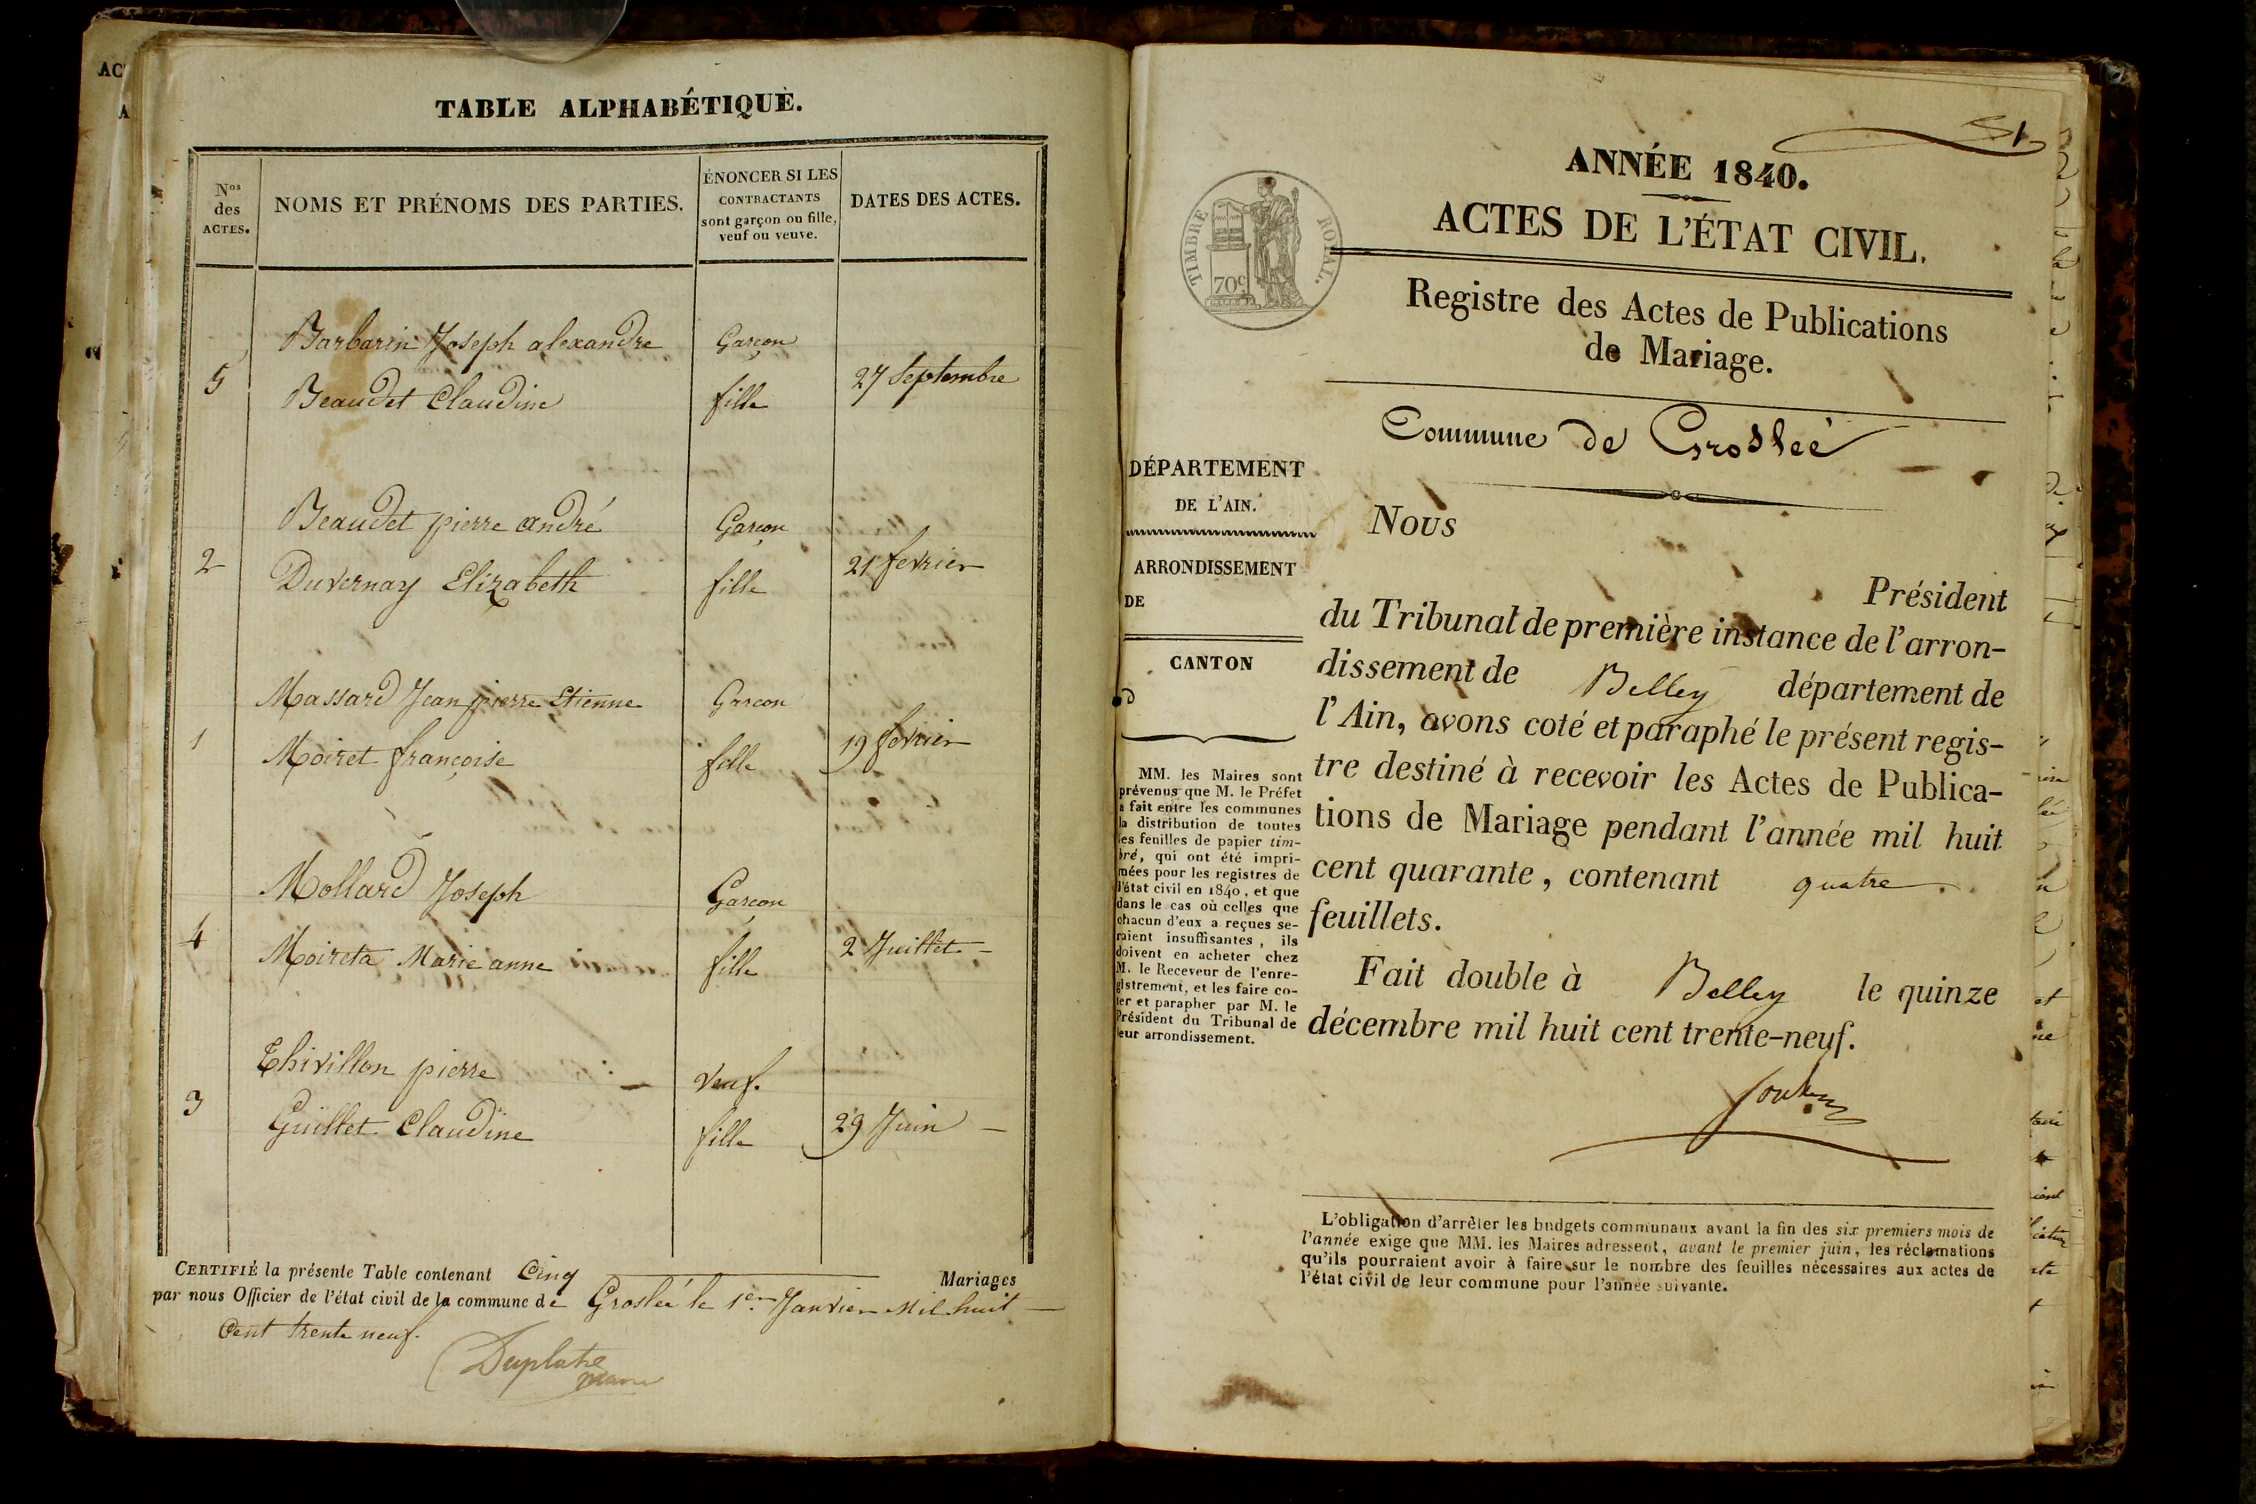 TABLE ALPHABÉTIQUE.
Nos
des
ACTES.
NOMS ET PRÉNOMS DES PARTIES.
ÉNONCER SI LES
CONTRACTANTS
sont garçon ou fille,
veuf ou veuve.
DATES DES ACTES.
Barbarin Joseph alexandre Garçon
5 27 Septembre
Beaudet Claudine fille
Beaudet pierre andré Garçon
2 21 fevrier
Duvernay Elizabeth fille
Massard Jean pierre Etienne Garcon
1 19 fevrier
Moiret françoise fille
Mollard Joseph Garçon
4 2 Juillet
Moireta Marie anne fille
Thivillon pierre veuf.
3 29 Juin
Guillet Claudine fille
CERTIFIÉ la présente Table contenant Cinq Mariages
par nous Officier de l'état civil de la commune de Groslée le 1er Janvier Mil huit
Cent trente neuf.
Duplatre
maire
51
ANNÉE 1840.
ACTES DE L'ÉTAT CIVIL.
TIMBRE ROYAL.
70c
Registre des Actes de Publications
de Mariage.
Commune de Groslée
DÉPARTEMENT
DE L'AIN.
ARRONDISSEMENT
DE
CANTON
MM. les Maires sont
prévenus que M. le Préfet
a fait entre les communes
la distribution de toutes
les feuilles de papier tim-
bré, qui ont été impri-
mées pour les registres de
l'état civil en 1840, et que
dans le cas où celles que
chacun d'eux a reçues se-
raient insuffisantes, ils
doivent en acheter chez
M. le Receveur de l'enre-
gistrement, et les faire co-
ter et parapher par M. le
Président du Tribunal de
leur arrondissement.
Nous
Président
du Tribunal de première instance de l'arron-
dissement de Belley département de
l'Ain, avons coté et paraphé le présent regis-
tre destiné à recevoir les Actes de Publica-
tions de Mariage pendant l'année mil huit
cent quarante, contenant quatre
feuillets.
Fait double à Belley le quinze
décembre mil huit cent trente-neuf.
L'obligation d'arrêter les budgets communaux avant la fin des six premiers mois de
l'année exige que MM. les Maires adressent, avant le premier juin, les réclamations
qu'ils pourraient avoir à faire sur le nombre des feuilles nécessaires aux actes de
l'état civil de leur commune pour l'année suivante.